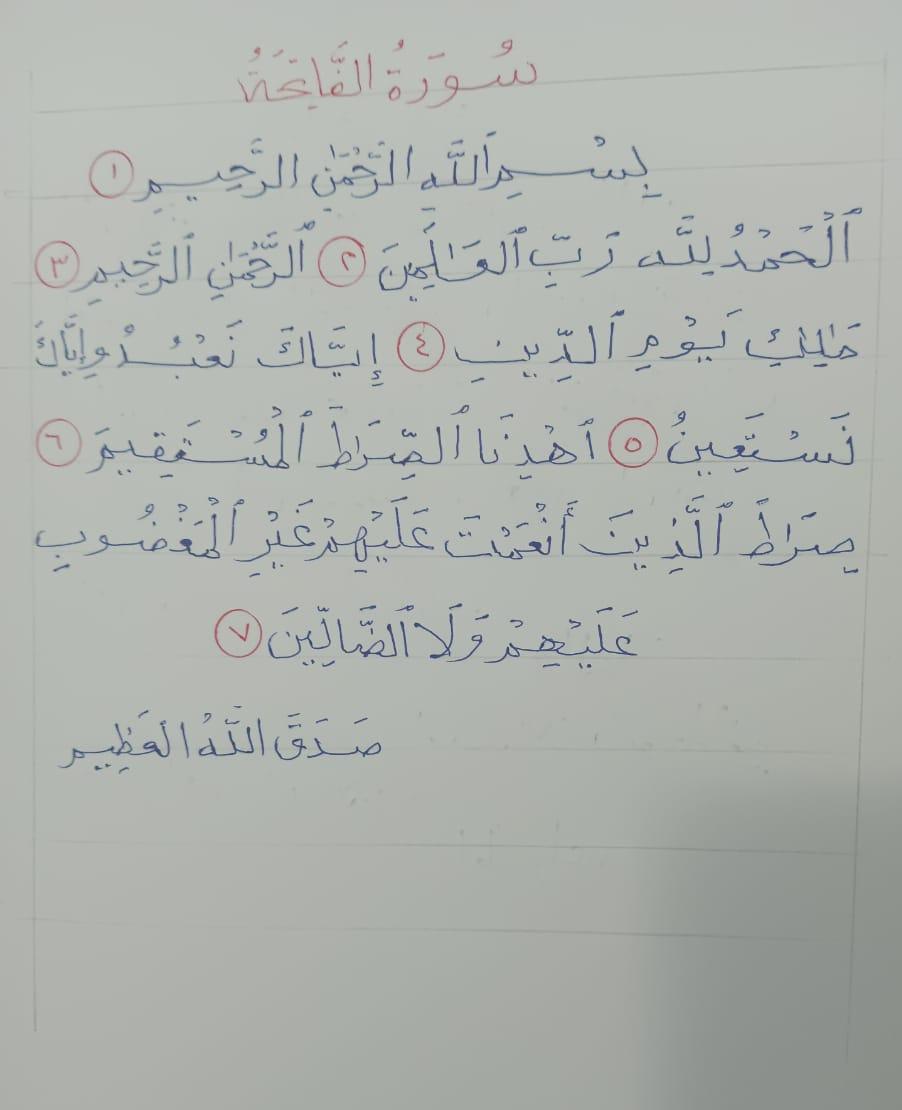 سُورَةُ الفَّاتِحَةُ
بِسْمِ ٱللَّهِ الرَّحْمَٰنِ الرَّحِيمِ ١
ٱلْحَمْدُ لِلَّهِ رَبِّ ٱلْعَالَمِينَ ٢ ٱلرَّحْمَٰنِ ٱلرَّحِيمِ ٣
مَٰلِكِ يَوْمِ ٱلدِّينِ ٤ إِيَّاكَ نَعْبُدُ وَإِيَّاكَ
نَسْتَعِينُ ٥ ٱهْدِنَا ٱلصِّرَاطَ ٱلْمُسْتَقِيمَ ٦
صِرَاطَ ٱلَّذِينَ أَنْعَمْتَ عَلَيْهِمْ غَيْرِ ٱلْمَغْضُوبِ
عَلَيْهِمْ وَلَا ٱلضَّالِّينَ ٧
صَدَقَ اللَّهُ العَظِيم